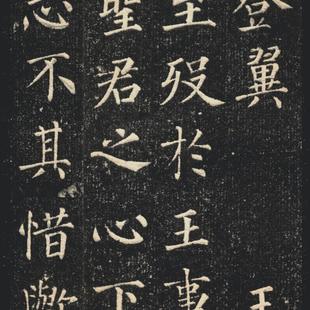 登翼
歿於王事
聖君之心下
不其惜歟